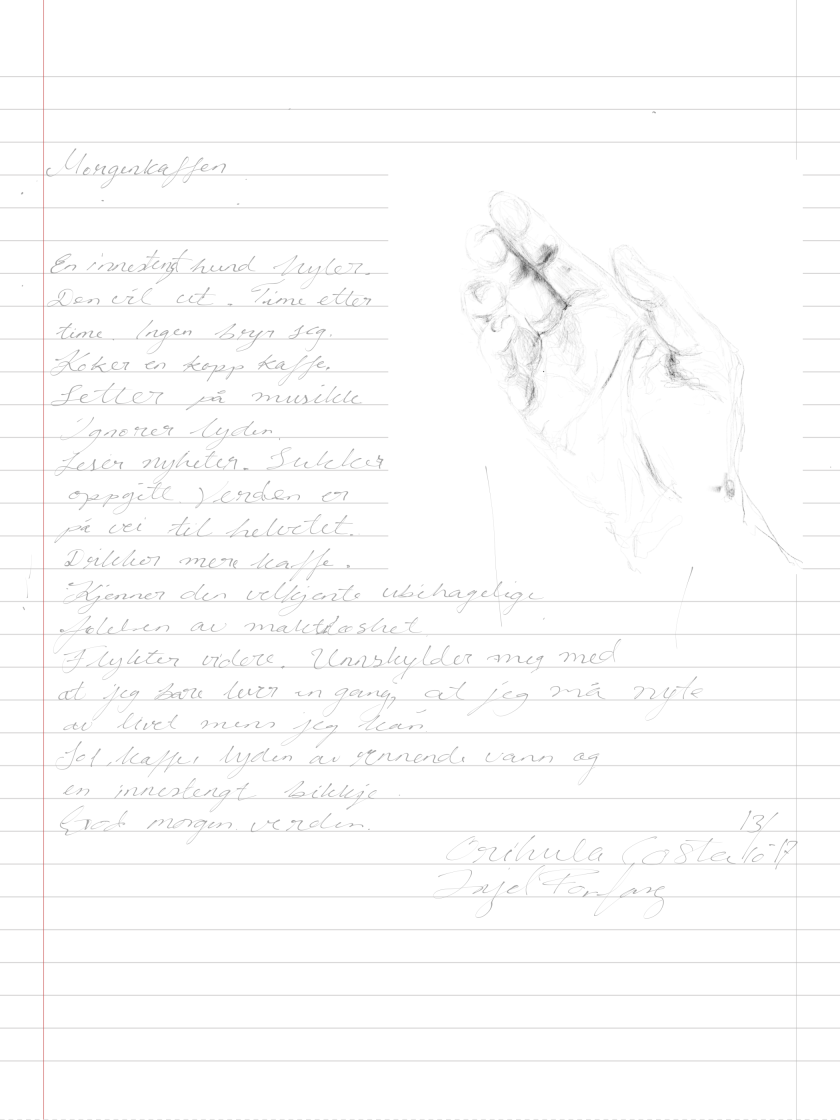 Morgenkaffen
En innestengt hund hyler.
Den vil ut. Time etter
time. Ingen bryr seg.
Koker en kopp kaffe.
Setter på musikk
Ignorer lyden.
Leser nyheter. Sukker
oppgitt. Verden er
på vei til helvetet.
Drikker mere kaffe.
Kjenner den velkjente ubehagelige
følelsen av maktløshet
Flykter videre. Unnskylder meg med
at jeg bare lever en gang, at jeg må nyte
av livet mens jeg kan
Sol, kaffe, lyden av rennende vann og
en innestengt bikkje.
God morgen verden.
13/
Orihuela Costa 10-17